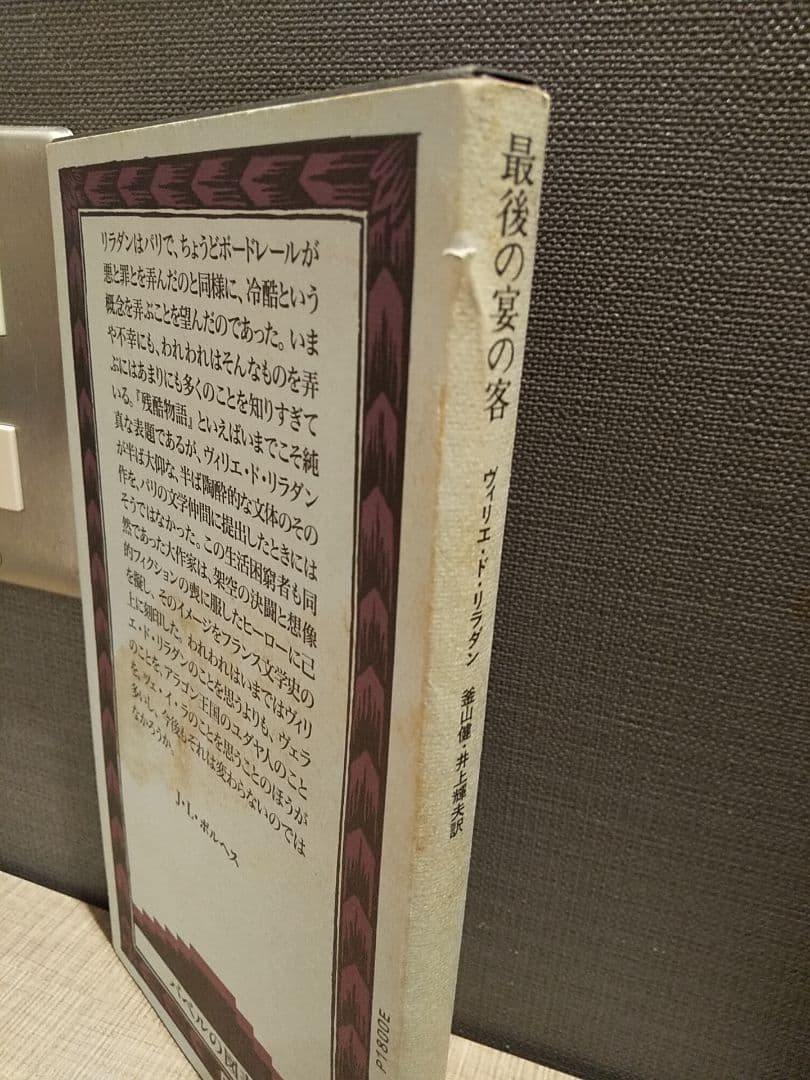 リラダンはパリで、ちょうどボードレールが
悪と罪とを弄んだのと同様に、冷酷という
概念を弄ぶことを望んだのであった。いま
や不幸にも、われわれはそんなものを弄
ぶにはあまりにも多くのことを知りすぎて
いる。『残酷物語』といえばいまでこそ純
真な表題であるが、ヴィリエ・ド・リラダン
が半ば大仰な、半ば陶酔的な文体のその
作を、パリの文学仲間に提出したときには
そうではなかった。この生活困窮者も同
然であった大作家は、架空の決闘と想像
的フィクションの喪に服したヒーローに己
を擬し、そのイメージをフランス文学史の
上に刻印した。われわれはいまではヴィリ
エ・ド・リラダンのことを思うよりも、ヴェラ
のことを、アラゴン王国のユダヤ人のこと
を、ヴェ・イ・ラのことを思うことのほうが
多いし、今後もそれは変わらないのでは
なかろうか。
J・L・ボルヘス
バベルの図
P1800E
最後の宴の客
ヴィリエ・ド・リラダン
釜山健・井上輝夫訳